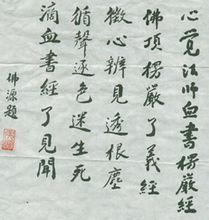 心覺法师血書楞嚴經
佛頂楞嚴了義經
徵心辨見透根塵
循聲逐色迷生死
滴血書經了見聞
佛源題